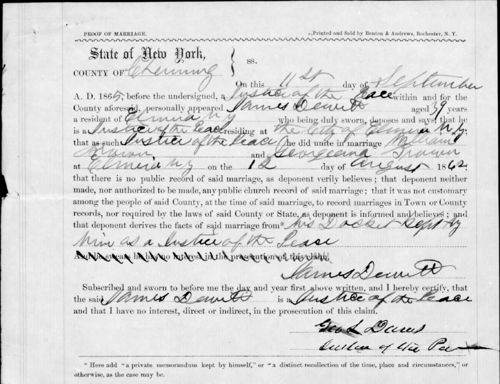 PROOF OF MARRIAGE. Printed and Sold by Benton & Andrews, Rochester, N. Y.
State of New York,
COUNTY OF Chemung } ss.
On this 11st day of September
A. D. 1865, before the undersigned, a Justice of the Peace within and for the
County aforesaid, personally appeared James Dewitt aged 59 years
a resident of Elmira N.Y. who being duly sworn, deposes and says, that he
is a Justice of the Peace residing at the City of Elmira N.Y.
that as such Justice of the Peace he did unite in marriage William
and Georgeana
at Elmira N.Y. on the 12 day of August 1862
that there is no public record of said marriage, as deponent verily believes; that deponent neither
made, nor authorized to be made, any public church record of said marriage; that it was not customary
among the people of said County, at the time of said marriage, to record marriages in Town or County
records, nor required by the laws of said County or State, as deponent is informed and believes; and
that deponent derives the facts of said marriage from his Docket kept by
him as a Justice of the Peace
And he swears he has no interest in the prosecution of this claim.
James Dewitt
Subscribed and sworn to before me the day and year first above written, and I hereby certify, that
the said James Dewitt is a Justice of the Peace
and that I have no interest, direct or indirect, in the prosecution of this claim.
Geo S
Justice of the Peace
* Here add "a private memorandum kept by himself," or "a distinct recollection of the time, place and circumstances," or
otherwise, as the case may be.